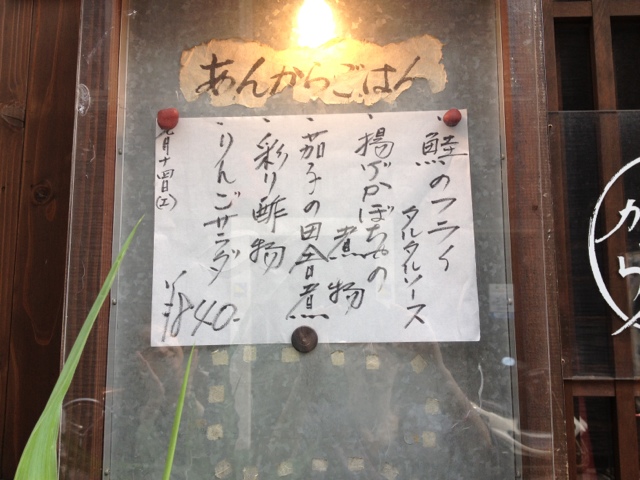 あんからごはん
・鮭のフライ
タルタルソース
・揚げかぼちゃの
煮物
・茄子の田舎煮
・彩り酢物
・りんごサラダ
¥840-
月十四日(工)
から